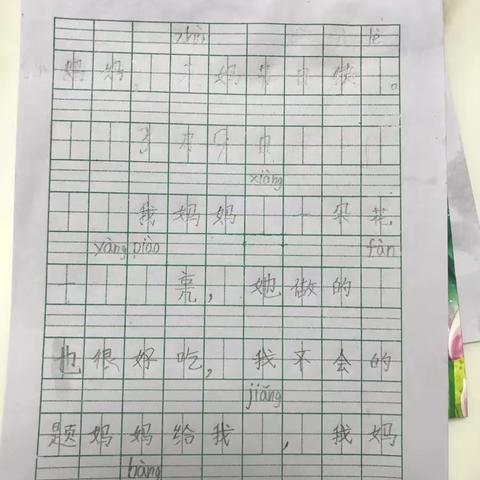 妈妈 妈
xiàng
我妈妈 一朵花
yàng piào fàn
亮，她做的
也很好吃，我不会的
jiǎng
题妈妈给我 ，我妈
bàng